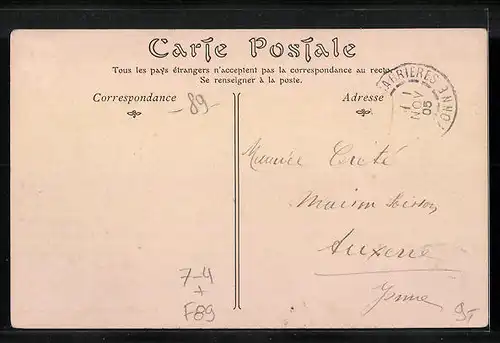 Carte Postale
Tous les pays étrangers n'acceptent pas la correspondance au recto.
Se renseigner à la poste.
Correspondance
Adresse
- 89 -
YONNE
1
NOV
05
Maurice Crété
Maison
Auxerre
Yonne
7-4
+
F89